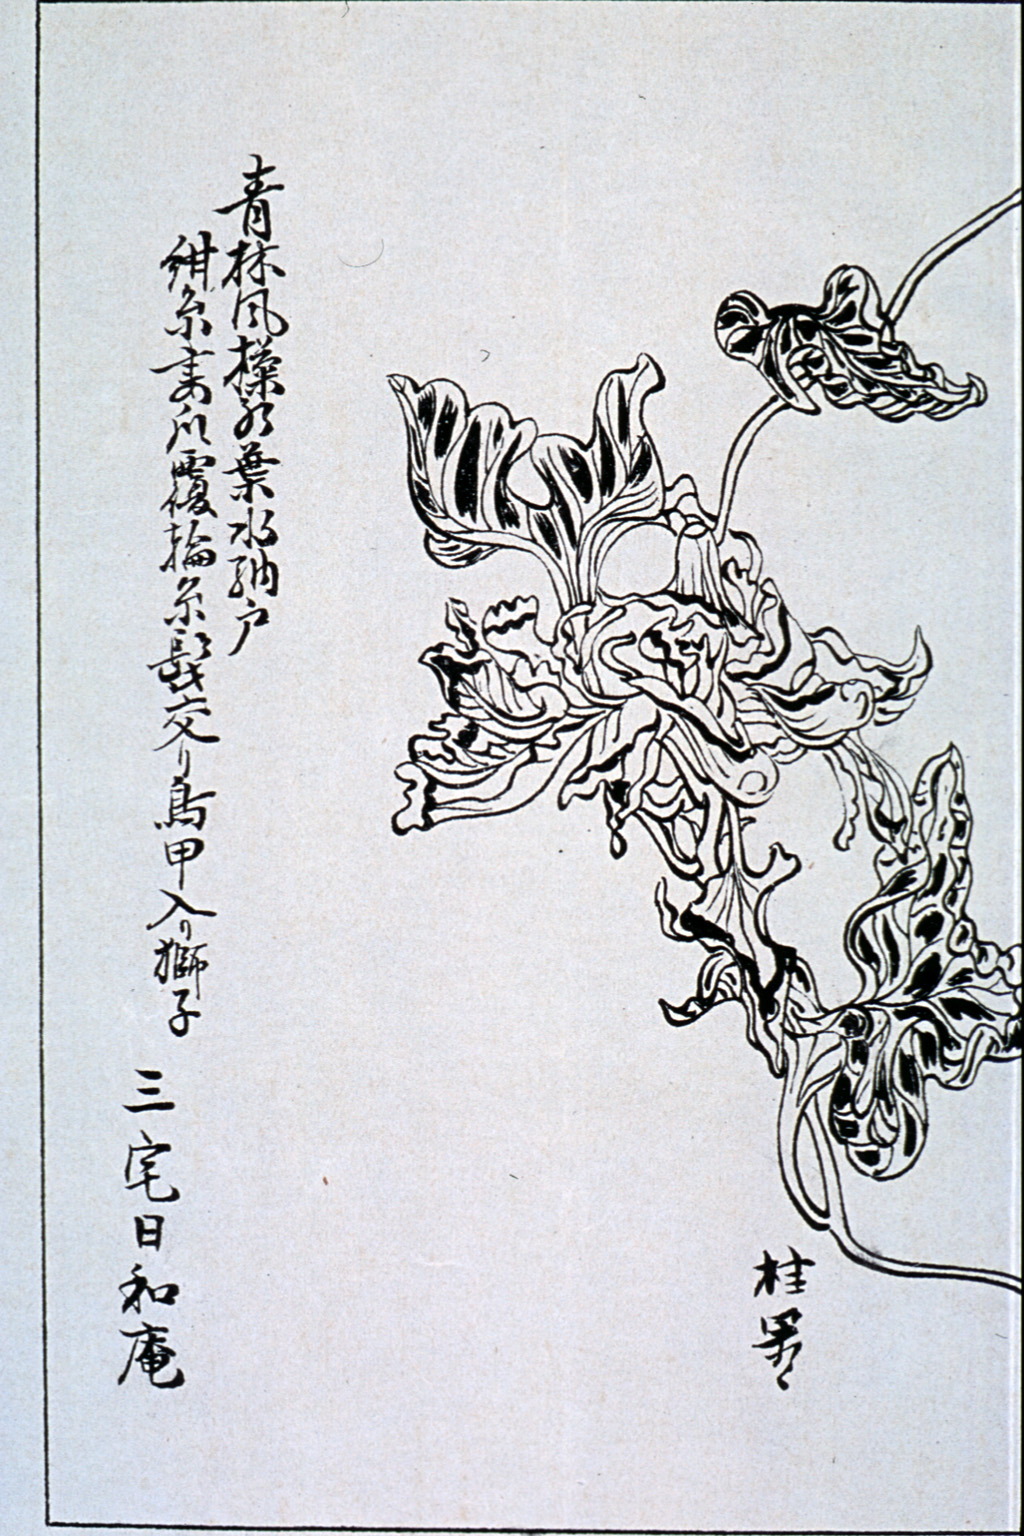 桂
青林風操葉水納戸
紺糸爪覆輪糸髭交り鳥甲入り獅子
三宅日和庵